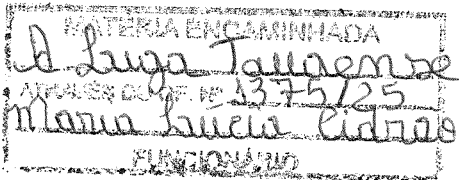 MATÉRIA ENCAMINHADA
A Liga Tauaense
ATRAVÉS DO OF. Nº 1375/25
Maria Lúcia Cidrao
FUNCIONÁRIO